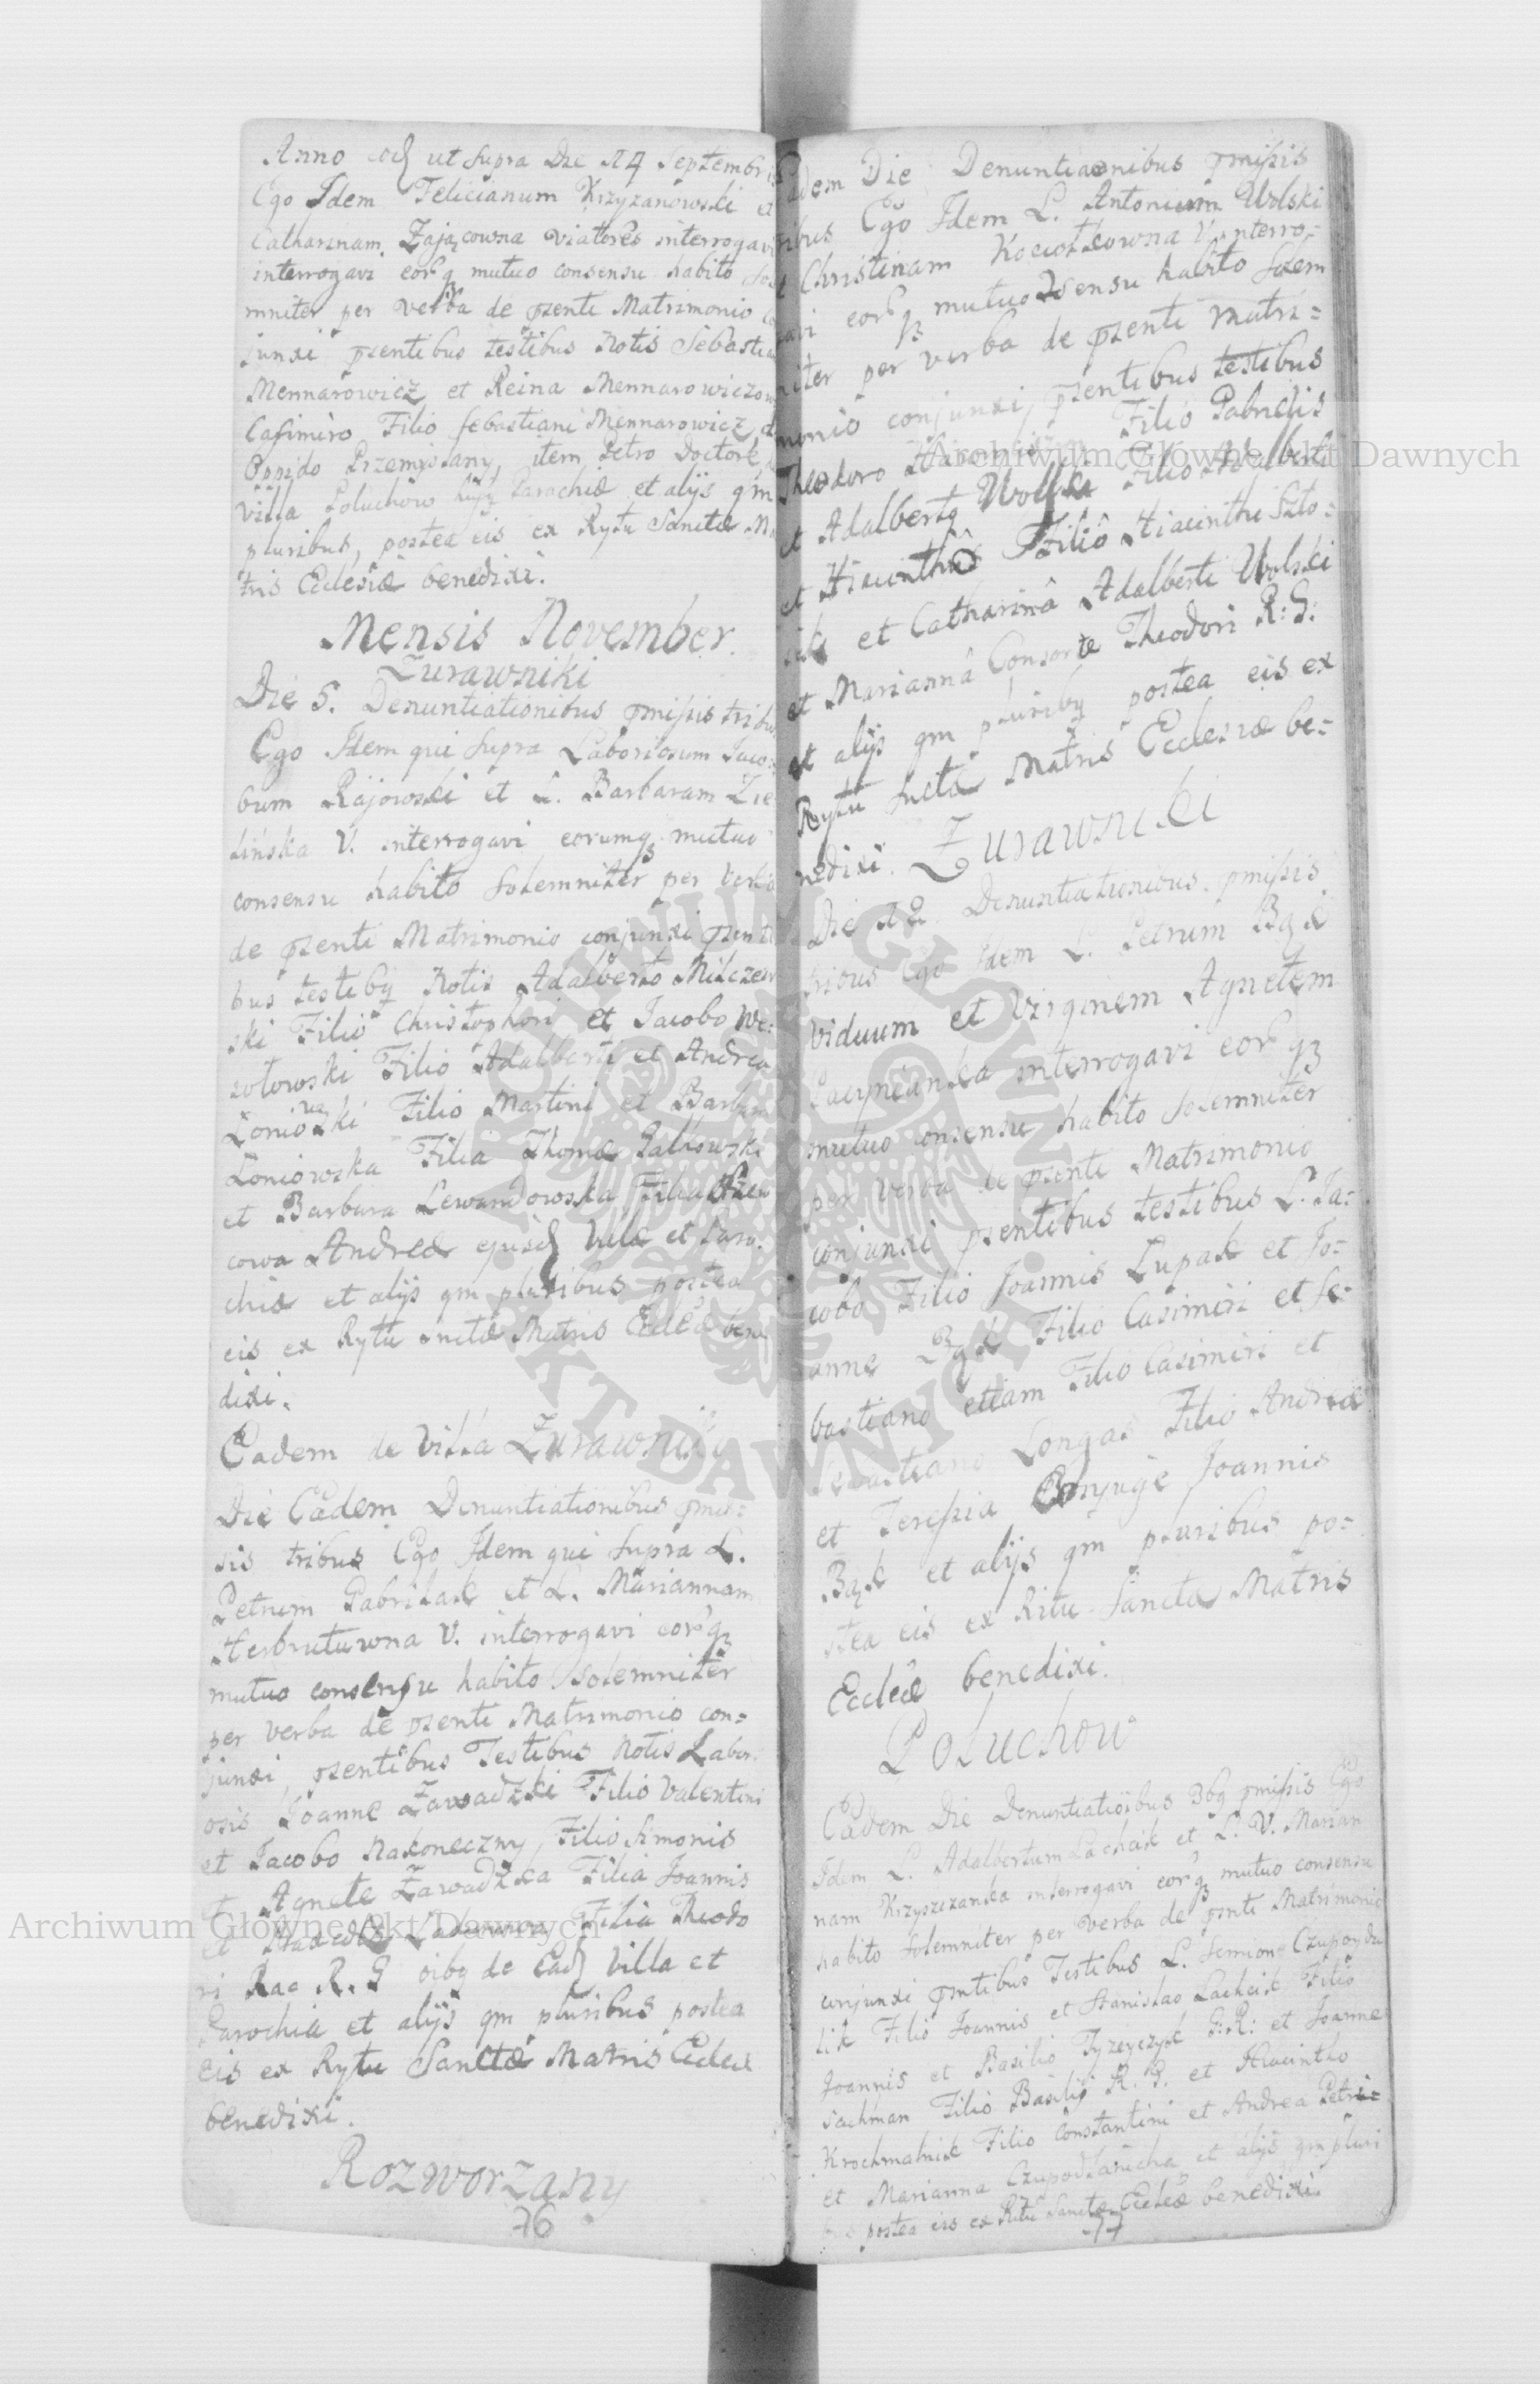 Anno eod ut supra Die 14 Septembris
Ego Idem Felicianum Krzyzanowski et
Catharinam Zającowna viatores interrogavi
interrogavi eorq mutuo consensu habito so
mniter per verba de psenti Matrimonio
junxi psentibus testibus Notis Sebastia
Mennarowicz et Reina Mennarowiczow
Casimiro Filio Sebastiani Mennarowicz d
Oppido Przemyslany, item Petro Doctore
Villa Poluchow hujq Parochiæ et alijs qm
pluribus, postea eis ex Rytu Sanctæ Ma
tris Ecclesiæ benedixi.
Mensis November.
Zurawniki
Die 5. Denuntiationibus pmissis tribus
Ego Idem qui supra Laboriosum Jaco
bum Rajowski et L. Barbaram Zie
lińska V. interrogavi eorumq mutuo
consensu habito solemniter per verba
de psenti Matrimonio conjunxi psenti
bus testibq Notis Adalberto Milczew
ski Filio Christophori et Jacobo We:
sołowski Filio Adalberti et Andrea
Filio Martini et Barbara
Loniowska Filia Thomæ
et Barbara Lewandowska Filia
Andreæ ejusd Villæ et Paro.
chiæ et alijs qm pluribus postea
eis ex Rytu snctæ Matris Eclæ bene
dixi.
Eadem de Villa Zurawniki
Die Eadem Denuntiationibus pmis=
sis tribus Ego Idem qui supra L.
Petrum Gabrilak et L. Mariannam
V. interrogavi eorq
mutuo consensu habito solemniter
per verba de psenti Matrimonio con=
junxi, psentibus Testibus Notis Labori
osis Joanne Zawadzki Filio Valentini
et Jacobo Nakoneczny Filio Simonis
et Agnete Zawadzka Filia Joannis
et Filia Theodo
ri Rac R. G oibq de Ead Villa et
Parochia et alijs qm pluribus postea
eis ex Rytu Sanctæ Matris Eclæ
benedixi.
Rozworzany
76
Eadem Die Denuntiaonibus pmissis
tribus Ego Idem L. Antonium Wolski
et Christinam V. interro=
gavi eorq mutuo 2sensu habito solem
niter per verba de psenti matri=
monio conjunxi, psentibus testibus
Theodoro Filio Gabrielis
et Adalberto Wolski Filio Adalberti
et Hiacintho Filio Hiacinthi
et Catharina Adalberti Wolski
et Marianna Consorte Theodori R: G:
et alijs qm pluribq postea eis ex
Rytu Sactæ Matris Ecclesiæ be=
nedixi. Zurawniki
Die 12. Denuntiationibus pmissis
tribus Ego Idem L. Petrum Bąk
viduum et Virginem Agnetem
interrogavi eorq
mutuo consensu habito solemniter
per verba de psenti Matrimonio
conjunxi psentibus testibus L. Ja=
cobo Filio Joannis Lupak et Jo=
anne Bąk Filio Casimiri et Se=
bastiano etiam Filio Casimiri et
Sebastiano Longas Filio Andreæ
et Teressia Conjuge Joannis
Bąk et alijs qm pluribus po=
stea eis ex Ritu Sanctæ Matris
Eccleæ benedixi.
Poluchow
Eadem Die Denuntiatioibus 3bq pmissis Ego
Idem L. Adalbertum Lachcik et L. V. Marian
nam Krzyszczanka interrogavi eorq mutuo consensu
habito solemniter per verba de psnti Matrimonio
conjunxi psntibus Testibus L. Semione
lik Filio Joannis et Stanislao Lachcik Filio
Joannis et Basilio G: R: et Joanne
Sachman Filio Basilij R. G. et Hiacintho
Krochmalnik Filio Constantini et Andrea Petri=
et Marianna et alijs qm pluri
bus postea eis ex Ritu Sanctæ Ecclæ benedixi.
77
Archiwum Główne Akt Dawnych
Archiwum Główne Akt Dawnych
ARCHIWUM GŁÓWNE
AKT DAWNYCH